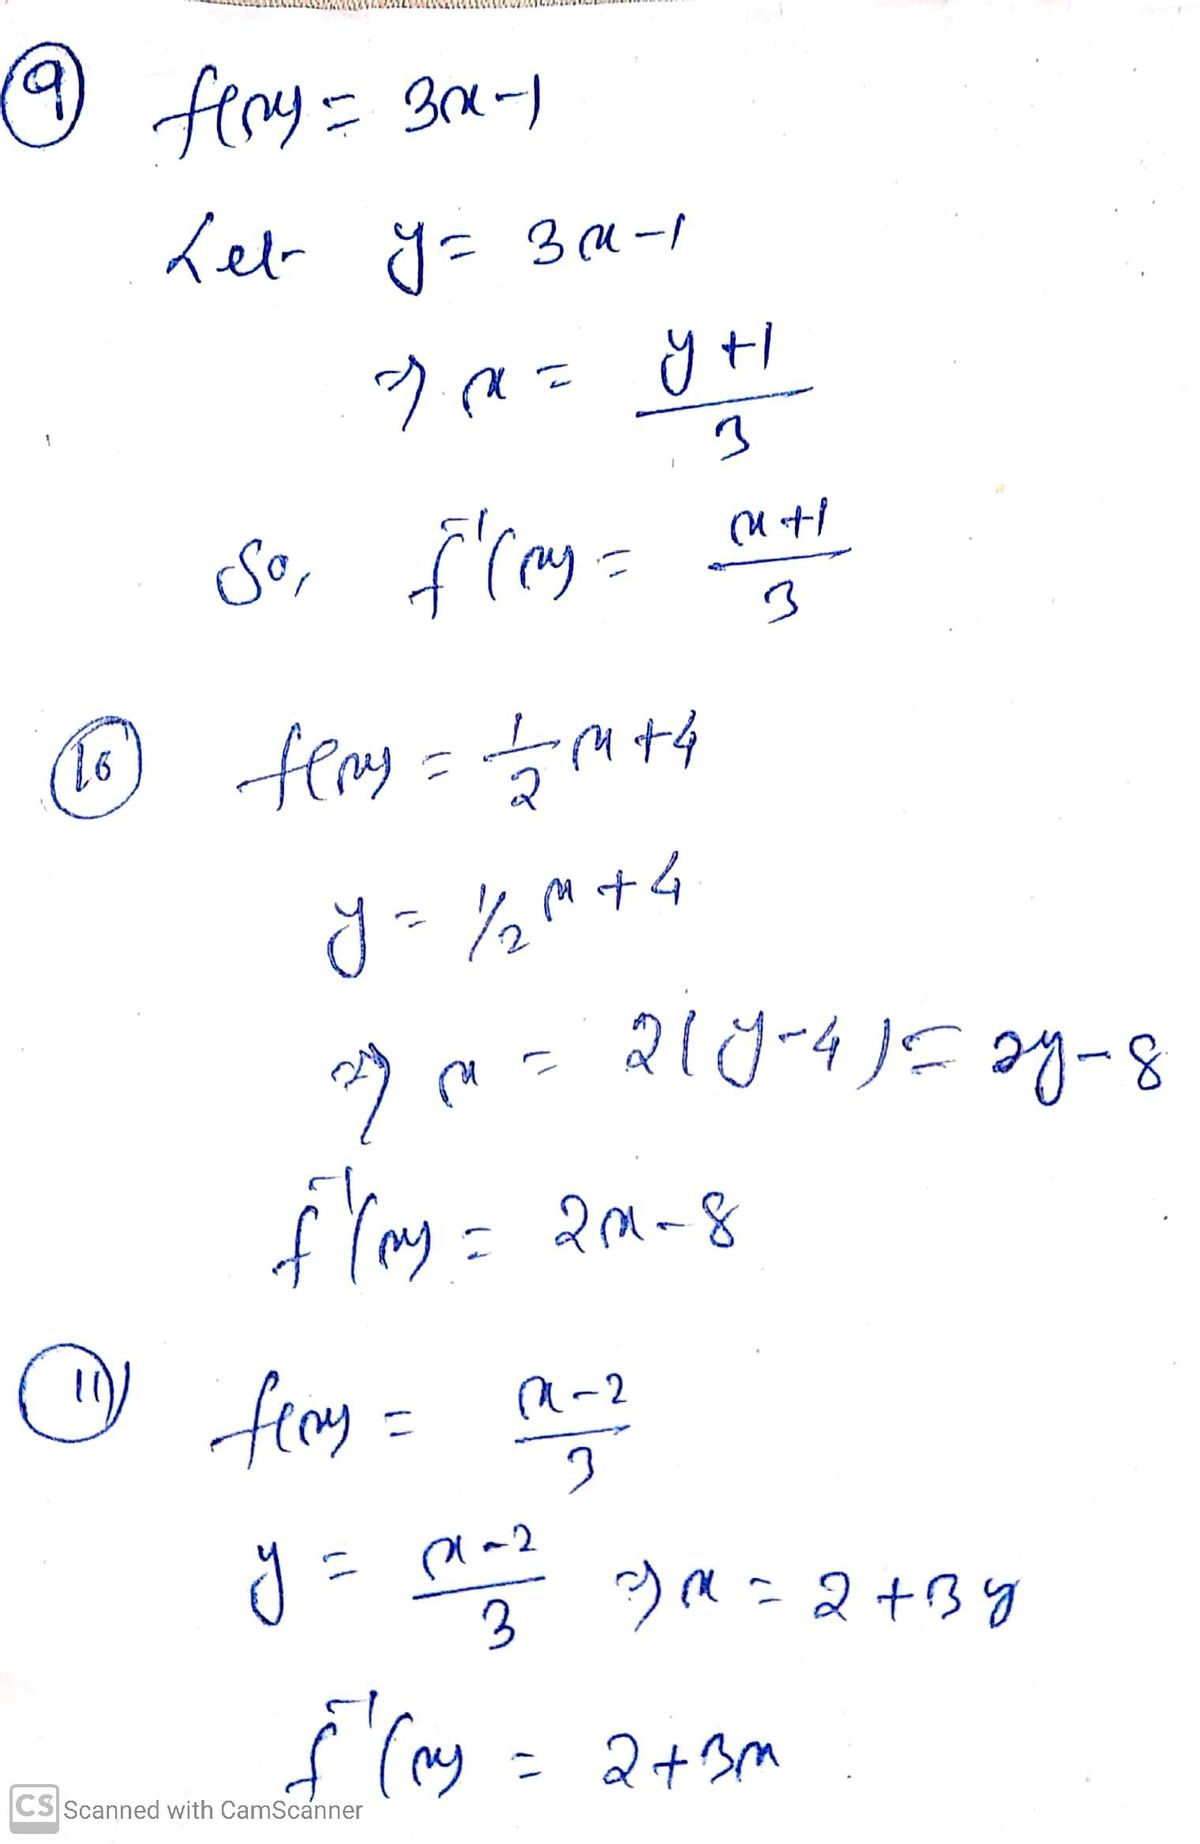 9 f(x) = 3x-1
Let y = 3x-1
⇒ x = (y+1)/3
So, f⁻¹(x) = (x+1)/3
10 f(x) = 1/2 x+4
y = 1/2 x+4
⇒ x = 2(y-4) = 2y-8
f⁻¹(x) = 2x-8
11 f(x) = (x-2)/3
y = (x-2)/3 ⇒ x = 2+3y
f⁻¹(x) = 2+3x
CS Scanned with CamScanner